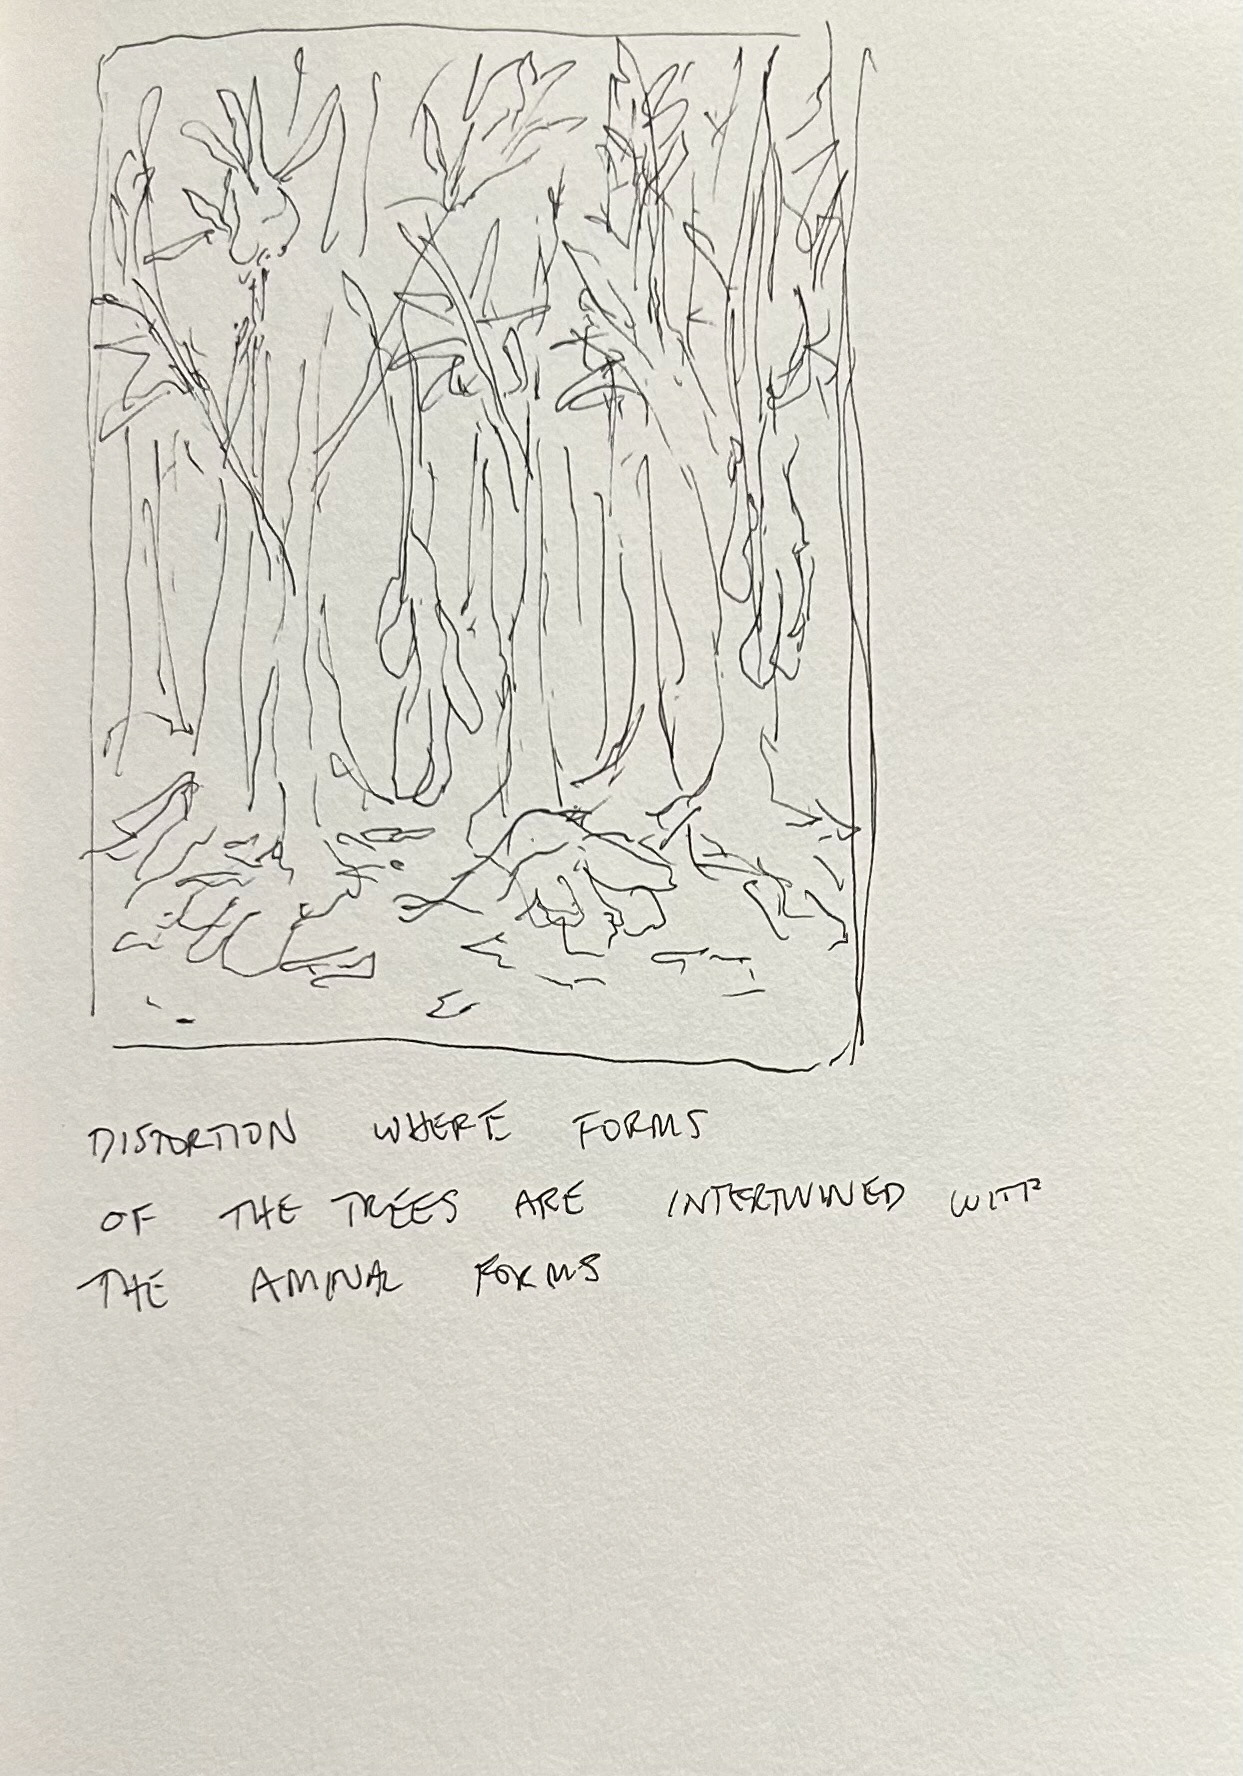 DISTORTION WHERE FORMS
OF THE TREES ARE INTERTWINED WITH
THE AMINAL FORMS